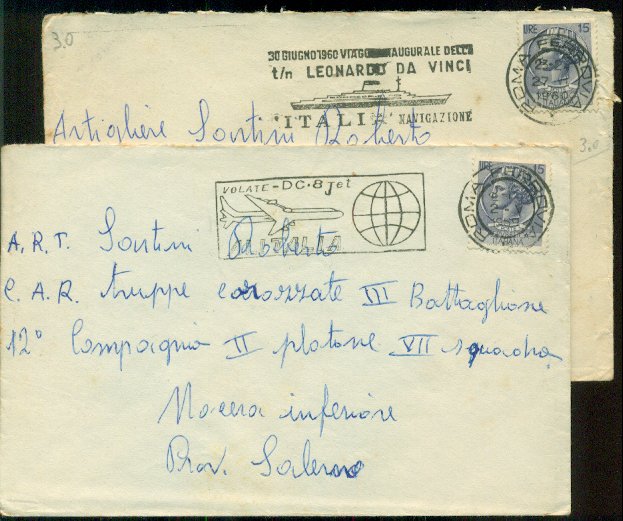 3.0
30 GIUGNO 1960 VIAGG AUGURALE DELL
t/n LEONARDO DA VINCI
"ITALIA" NAVIGAZIONE
LIRE 15
ROMA FERROVIA
27
1960
Artigliere Santini Roberto
3.0
VOLATE - DC-8 Jet
ALITALIA
LIRE 15
ROMA FERROVIA
A.R.T. Santini Roberto
C.A.R. truppe corazzate III Battaglione
12° Compagnia II platone VII squadra
Nocera inferiore
Prov. Salerno